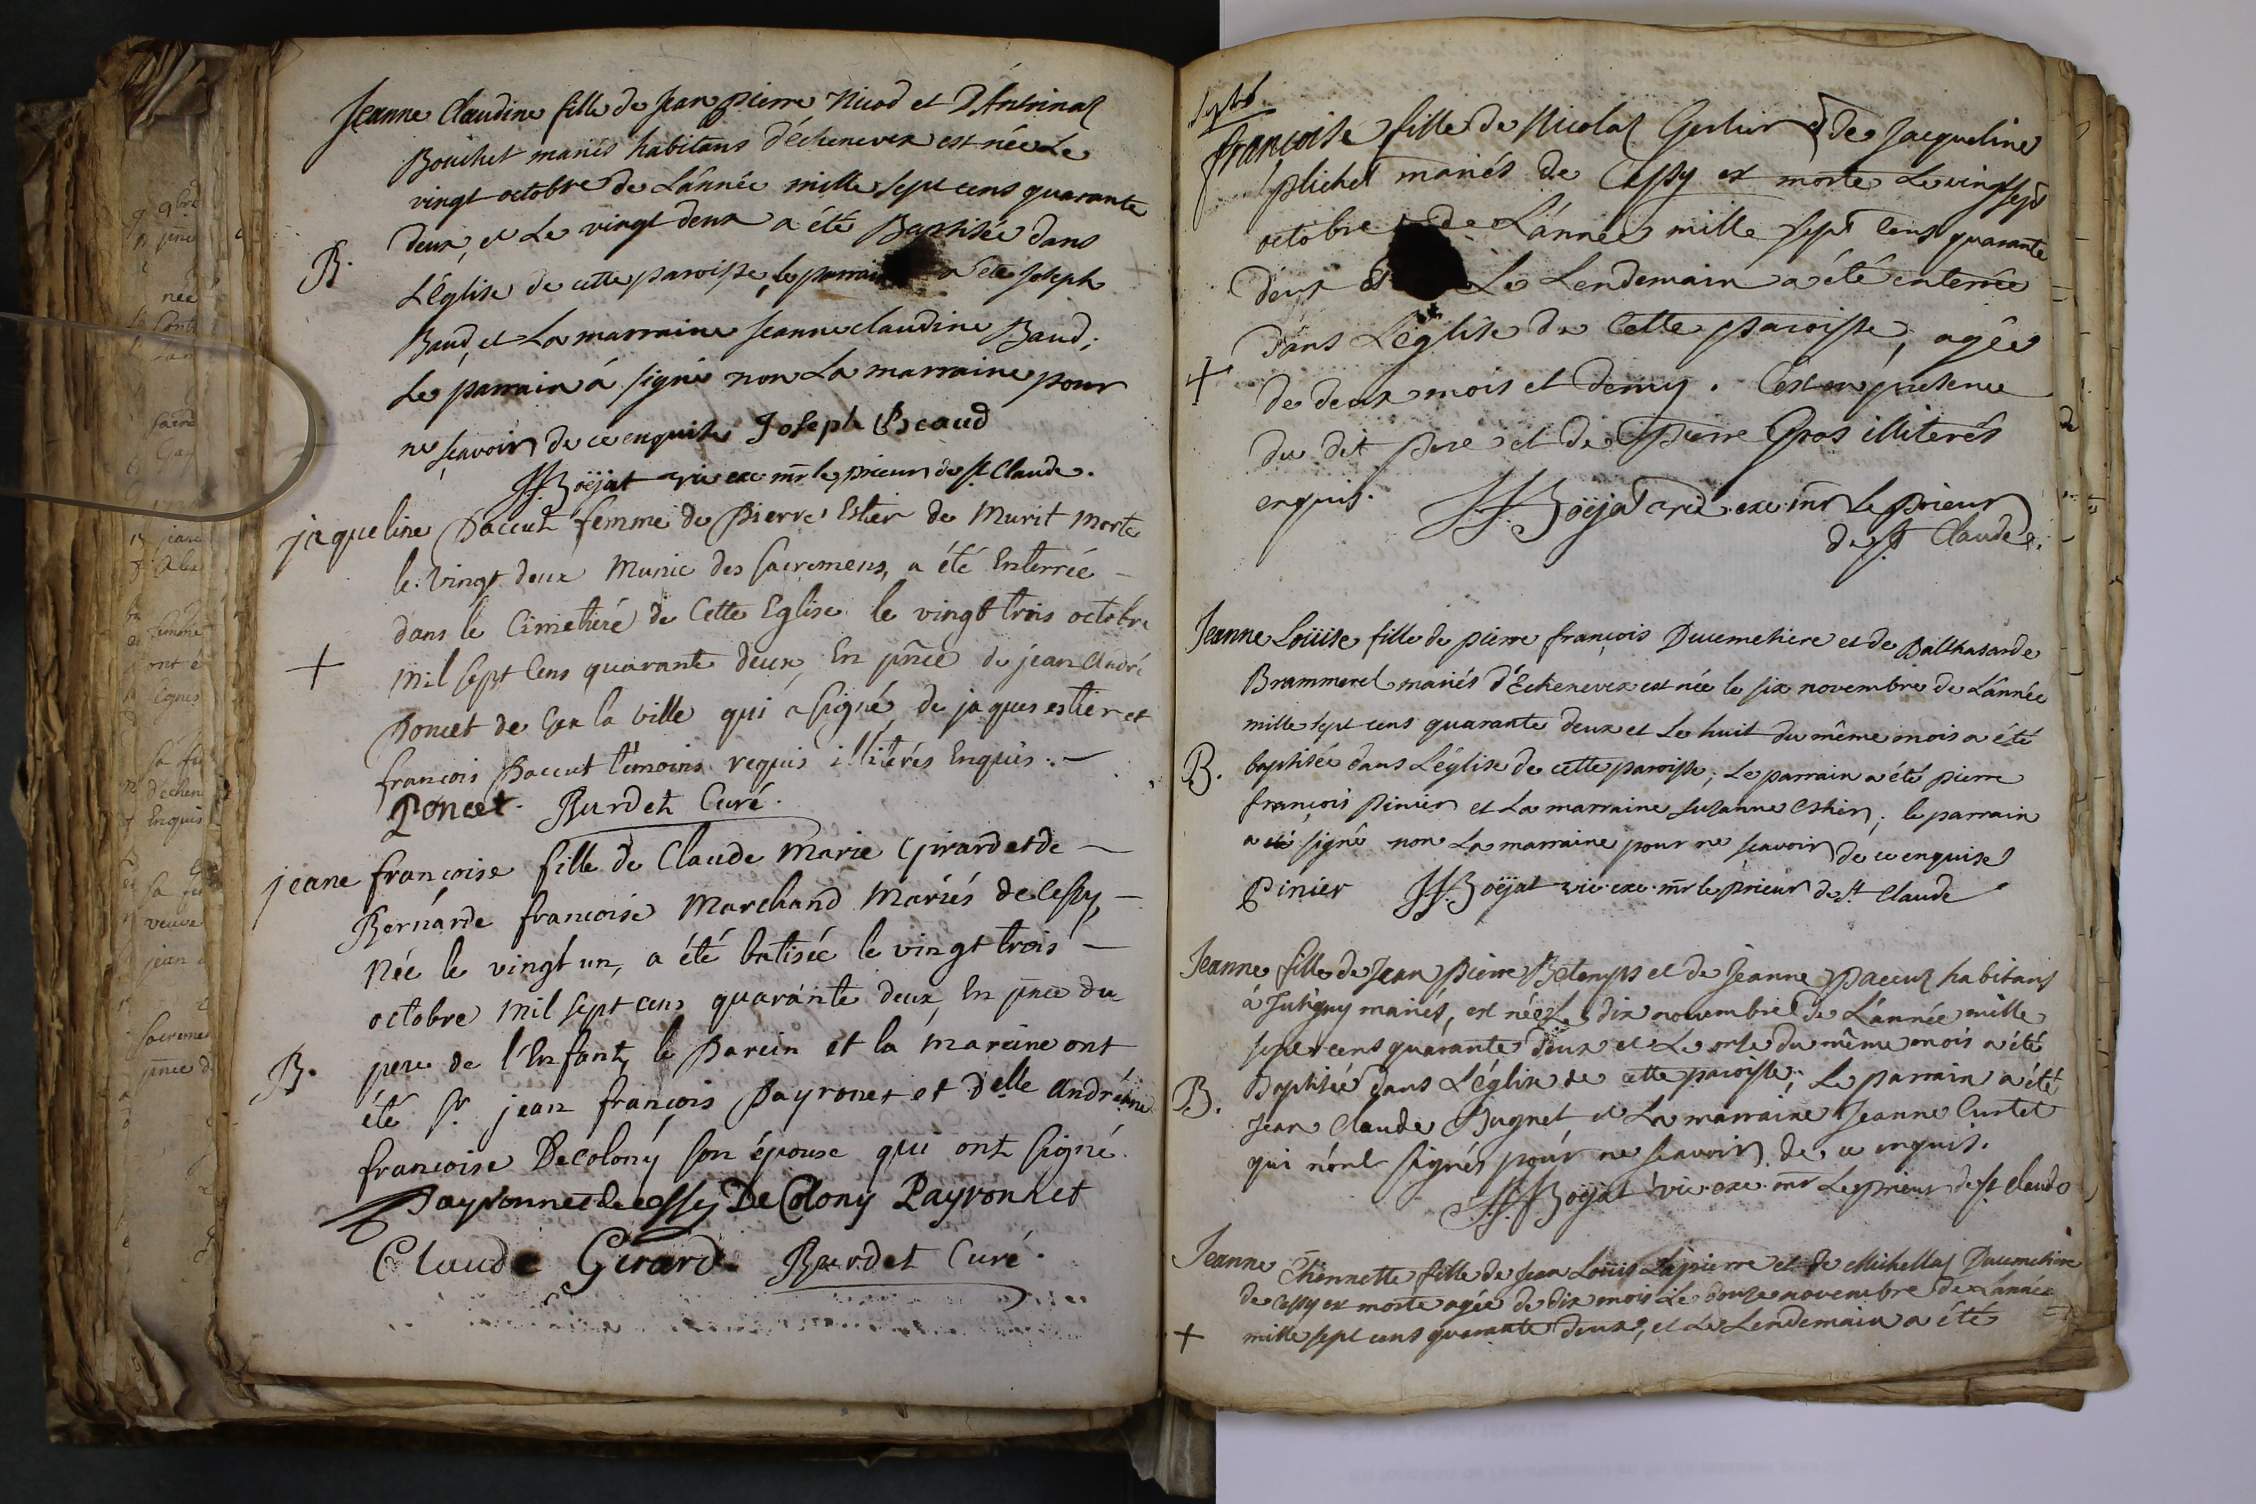 Jeanne Claudine fille de Jean pierre Nicod et D'Antoinaz
Bouchet mariés habitans d'échenevex est née Le
vingt octobre de L'année mille sept cens quarante
deux, et Le vingt deux a été Baptisée dans
B.
L'église de cette paroisse, le parrain a été Joseph
Baud, et La marraine Jeanne claudine Baud;
Le parrain à signé non La marraine pour
ne sçavoir de ce enquise Joseph Beaud
JJ. Boëjat vic exc mr le prieur de St. Claude.
jaqueline Paccut femme de Pierre Estier de Murit morte
le vingt deux Munie des sacremens, a été Enterrée —
dans le Cimetiere de Cette Eglise le vingt trois octobre
+
mil sept Cens quarante deux, En pnce de jean André
Poncet de Gex la ville qui a signé, de jaques estier et
francois Paccut témoins requis illiterés Enquis. —
Poncet. Burdet Curé.
jeane francoise fille de Claude Marie Girard et de —
Bernarde francoise Marchand Mariés de Cessy, —
Née le vingt un, a été batisée le vingt trois —
octobre mil sept cens quarante deux, En pnce du
B.
pere de l'Enfant, le Parein et la mareine ont
été Sr. jean françois Payronet et delle andréane
francoise Decolony son épouse qui ont signé.
Payronnet de cessy De Colony Payronnet
Claude Girard. Burdet Curé.
francoise fille de Nicolas et de Jacqueline
plichet mariés de Cessy est morte Le vingt sept
octobre de L'année mille sept cens quarante
deux et Le Lendemain a été enterrée
dans L'église de Cette paroisse, agée
+
de deux mois et demy. C'est en présence
du dit pere et de Pierre Gros illiterés
enquis. JJ. Boëjat vic. exc. mr Le prieur
de St. Claude.
Jeanne Loüise fille de pierre françois Ducimetiere et de Balthasarde
Brammerel mariés d'Echenevex est née le six novembre de L'année
mille sept cens quarante deux et Le huit du même mois a été
B.
baptisée dans L'église de cette paroisse; Le parrain a été pierre
françois Pinier et La marraine Susanne Estier; le parrain
a signé non La marraine pour ne scavoir de ce enquise
Pinier JJ. Boëjat vic. exc. mr le prieur de St. Claude
Jeanne fille de Jean Pierre Betemps et de Jeanne Paccuz habitans
à mariés, est née Le dix novembre de L'année mille
sept cens quarante deux et Le onse du même mois a été
B.
Baptisée dans L'église de cette paroisse; Le parrain a été
Jean Claude Bugnet, et La marraine Jeanne Curtet
qui n'ont signés pour ne scavoir de ce enquis.
JJ. Boëjat vic. exc. mr Le prieur de St. Claude
Jeanne Thiennette fille de Jean Loüis Lapierre et de Michellaz Ducimetiere
de Cessy est morte agée de dix mois Le douze novembre de L'année
+
mille sept cens quarante deux, et Le Lendemain a été